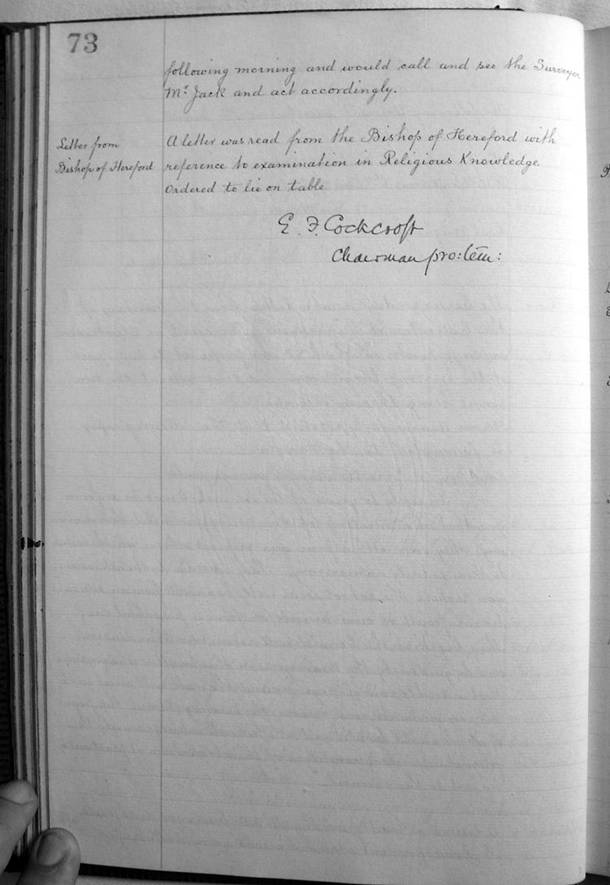 73
following morning and would call and see the Surveyor
Mr. Jack and act accordingly.
Letter from
Bishop of Hereford
A letter was read from the Bishop of Hereford with
reference to examination in Religious Knowledge
Ordered to lie on table
E. F. Cockcroft
Chairman pro: tem: